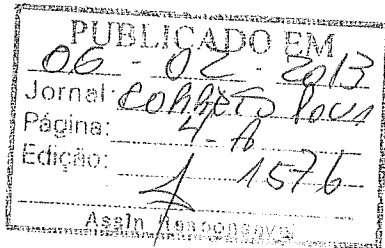 PUBLICADO EM
06 - 02 - 2013
Jornal: Correio Povo
Página: 4-A
Edição: 1576
Assin. Responsável